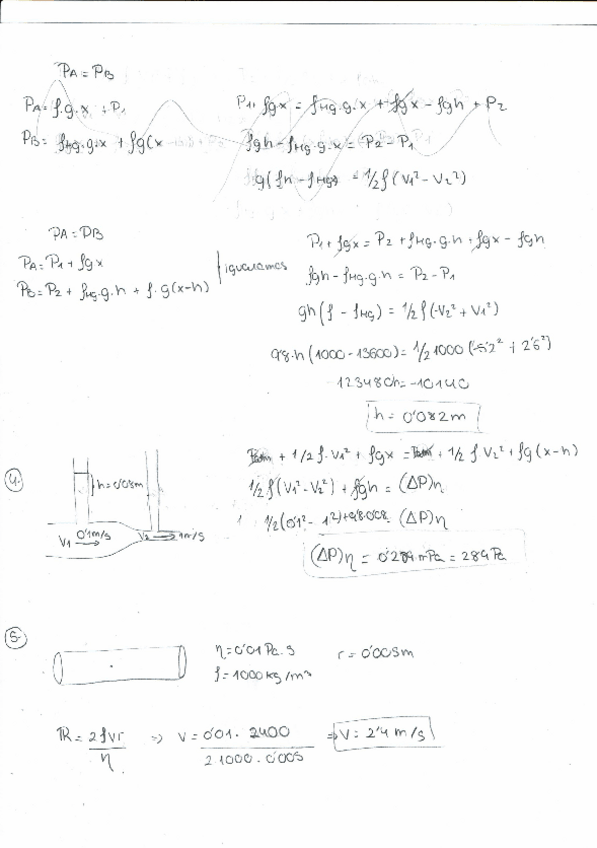 PA = PB
PA = ρ.g.x + P1
PB = ρHg.g.x + ρg(x
P1 + ρgx = ρHg.g.x + ρgx - ρgh + P2
ρgh - ρHg.g.x = P2 - P1
g(ρh - ρHg) = 1/2 ρ(V1² - V2²)
PA = PB
PA = P1 + ρgx
PB = P2 + ρHg.g.h + ρ.g(x-h)
igualamos
P1 + ρgx = P2 + ρHg.g.h + ρgx - ρgh
ρgh - ρHg.g.h = P2 - P1
gh(ρ - ρHg) = 1/2 ρ(-V2² + V1²)
9'8.h(1000-13600) = 1/2 1000(-5'2² + 2'6²)
123480h = -10140
h = 0'082m
4.
h = 0'08m
V1 0'1m/s
V2 1m/s
Patm + 1/2 ρ.V1² + ρgx = Patm + 1/2 ρ V2² + ρg(x-h)
1/2 ρ(V1² - V2²) + ρgh = (ΔP)η
1/2(0'1² - 1²) + 9'8.0'08 (ΔP)η
(ΔP)η = 0'289 mPa = 289 Pa
5.
η = 0'01 Pa.s
r = 0'005m
ρ = 1000 kg/m³
R = 2ρvr / η => V = 0'01. 2400 / 2.1000.0'005 => V = 2'4 m/s